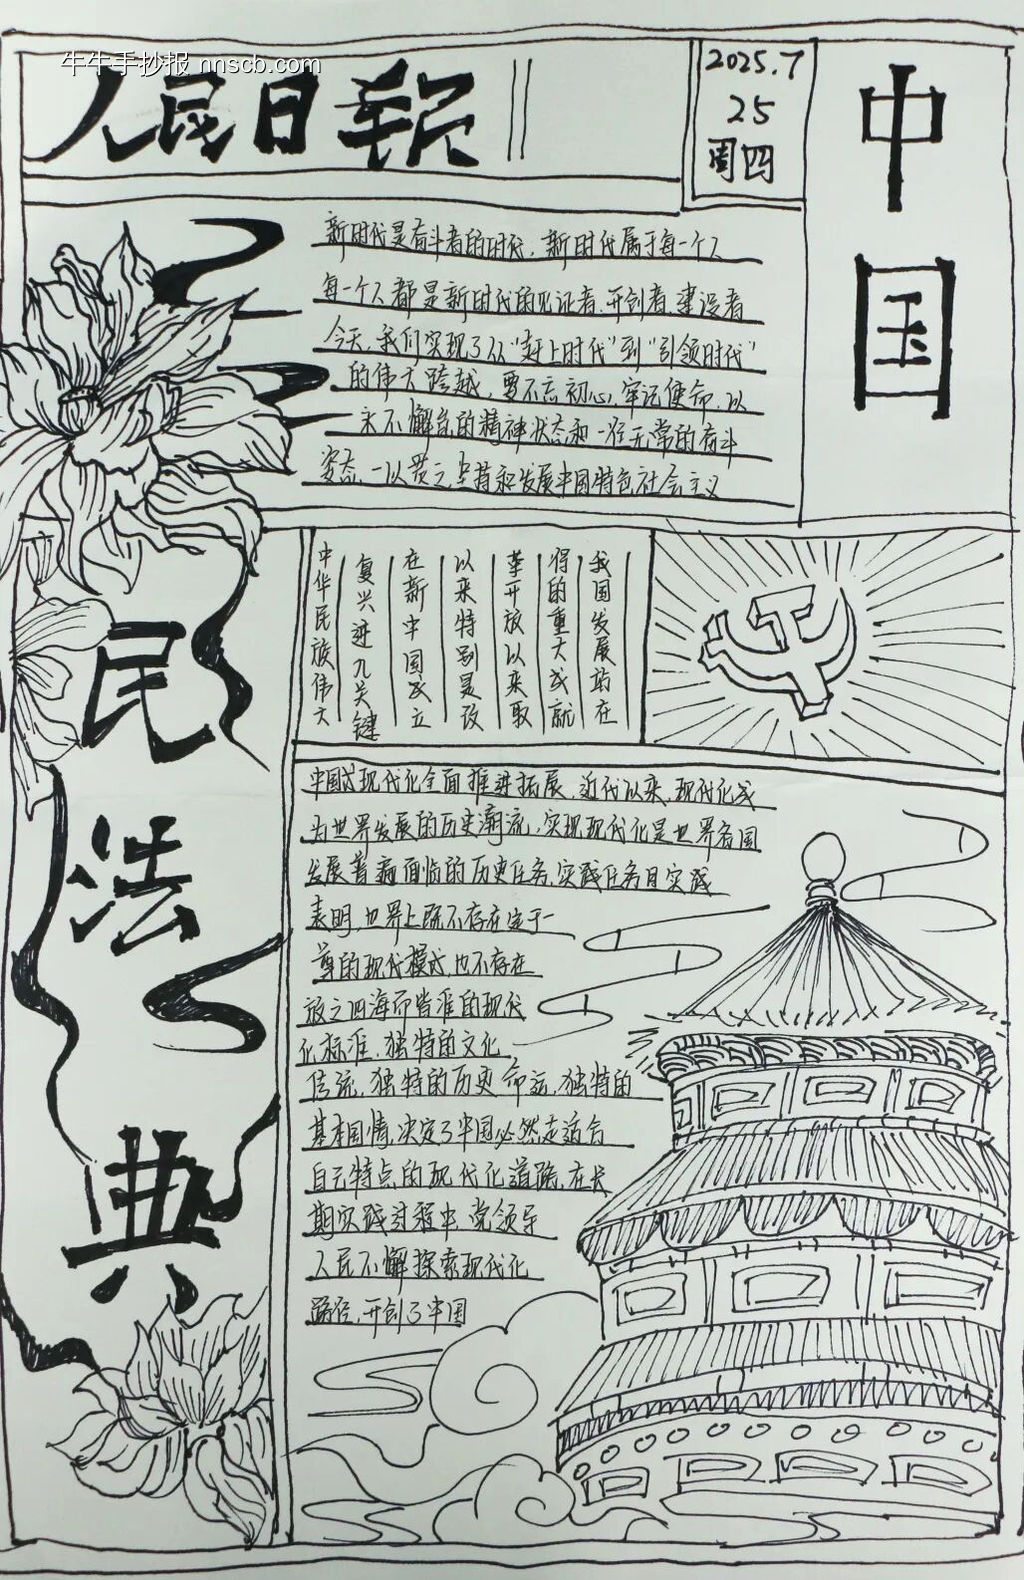 牛牛手抄报 nnscb.com
人民日报
2025.7
25
周四
中国
新时代是奋斗者的时代，新时代属于每一个人
每一个人都是新时代的见证者、开创者、建设者
今天，我们实现了从“赶上时代”到“引领时代”
的伟大跨越，要不忘初心，牢记使命，以
永不懈怠的精神状态和一往无常的奋斗
姿态，一以贯之坚持和发展中国特色社会主义
民法典
我国发展站在
得的重大成就
革开放以来取
以来特别是改
在新中国成立
复兴进入关键
中华民族伟大
中国式现代化全面推进拓展，近代以来，现代化成
为世界发展的历史潮流，实现现代化是世界各国
发展普遍面临的历史任务，实践任务目实践
表明，世界上既不存在定于一
尊的现代模式，也不存在
放之四海而皆准的现代
化标准，独特的文化
传统，独特的历史命运，独特的
基本国情，决定了中国必然走适合
自己特点的现代化道路，在长
期实践过程中，党领导
人民不懈探索现代化
路径，开创了中国